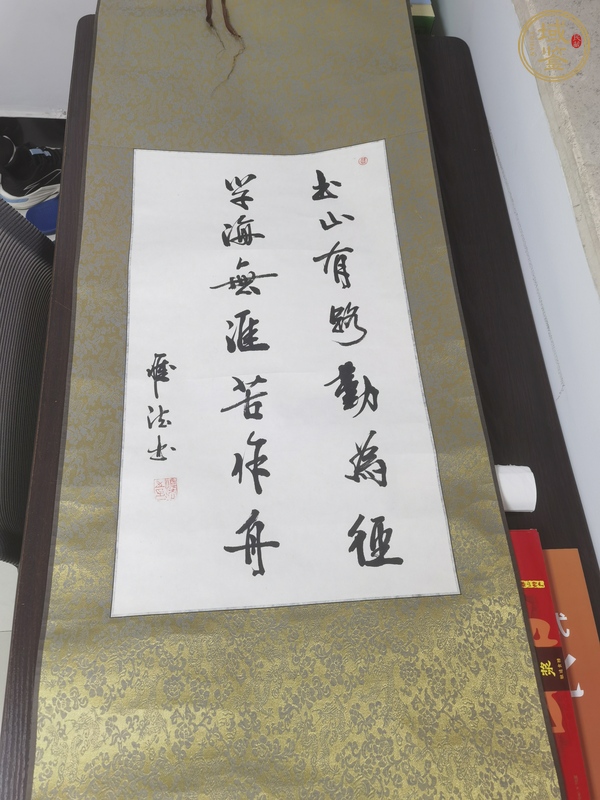 书山有路勤为径
学海無涯苦作舟
雁法书